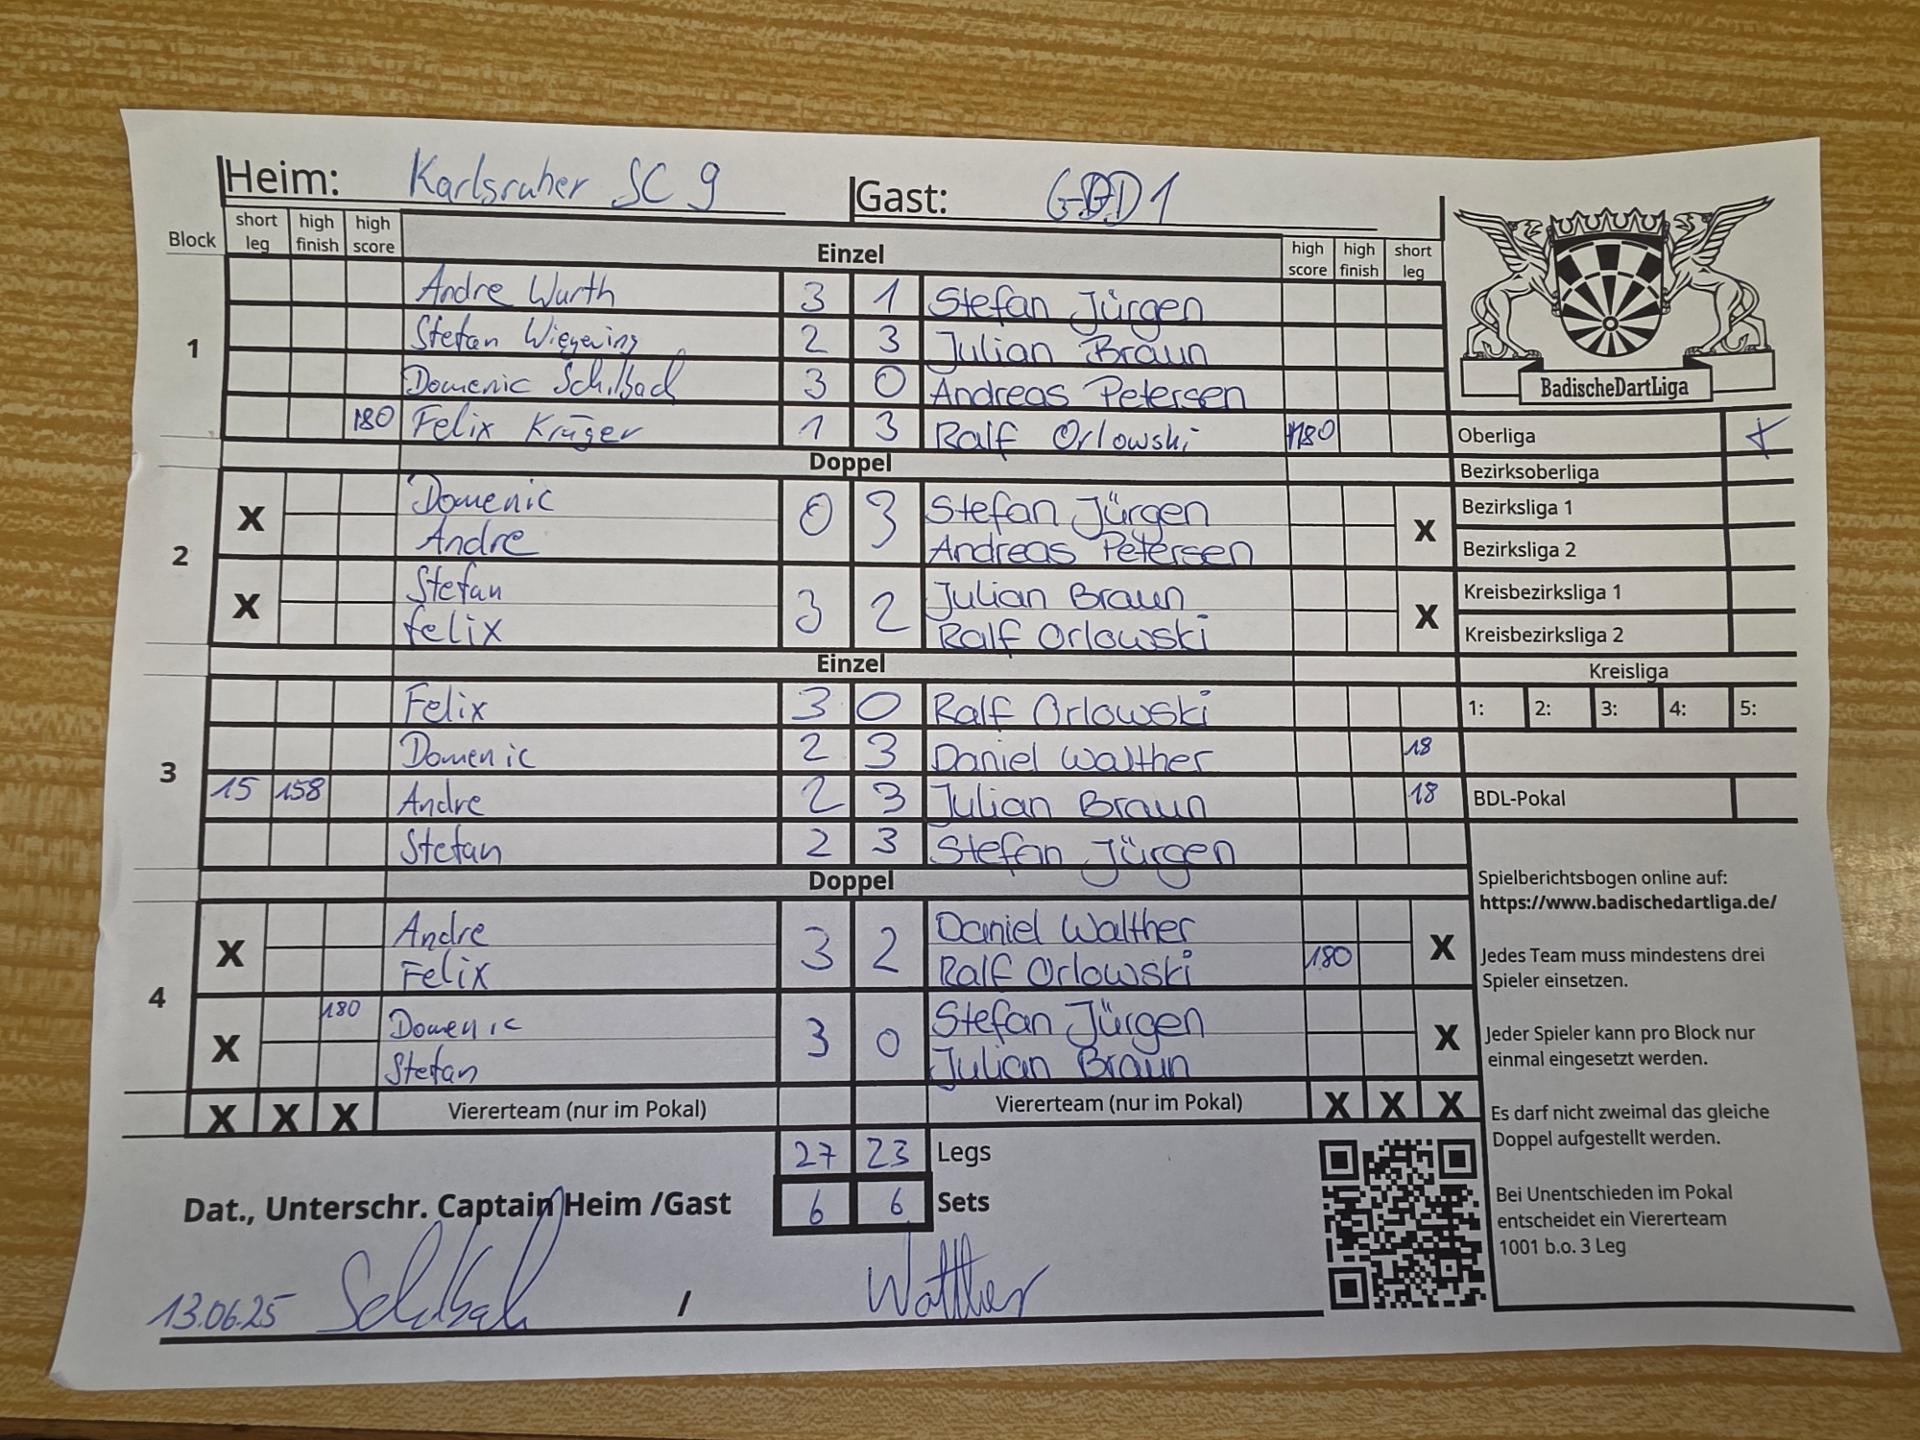 Heim: Karlsruher SC 9 Gast: GDD1
Block short leg high finish high score Einzel high score high finish short leg
1
Andre Wurth 3 1 Stefan Jürgen
Stefan Wiegering 2 3 Julian Braun
Domenic Schilbach 3 0 Andreas Petersen
180 Felix Krüger 1 3 Ralf Orlowski 180
Doppel
2
X Domenic 0 3 Stefan Jürgen X
Andre Andreas Petersen
X Stefan 3 2 Julian Braun X
felix Ralf Orlowski
Einzel
3
Felix 3 0 Ralf Orlowski
Domenic 2 3 Daniel Walther 18
15 158 Andre 2 3 Julian Braun 18
Stefan 2 3 Stefan Jürgen
Doppel
4
X Andre 3 2 Daniel Walther X
Felix Ralf Orlowski 180
X 180 Domenic 3 0 Stefan Jürgen X
Stefan Julian Braun
X X X Viererteam (nur im Pokal) Viererteam (nur im Pokal) X X X
27 23 Legs
Dat., Unterschr. Captain Heim /Gast 6 6 Sets
13.06.25 Schilbach / Walther
BadischeDartLiga
Oberliga X
Bezirksoberliga
Bezirksliga 1
Bezirksliga 2
Kreisbezirksliga 1
Kreisbezirksliga 2
Kreisliga
1: 2: 3: 4: 5:
BDL-Pokal
Spielberichtsbogen online auf:
https://www.badischedartliga.de/
Jedes Team muss mindestens drei
Spieler einsetzen.
Jeder Spieler kann pro Block nur
einmal eingesetzt werden.
Es darf nicht zweimal das gleiche
Doppel aufgestellt werden.
Bei Unentschieden im Pokal
entscheidet ein Viererteam
1001 b.o. 3 Leg